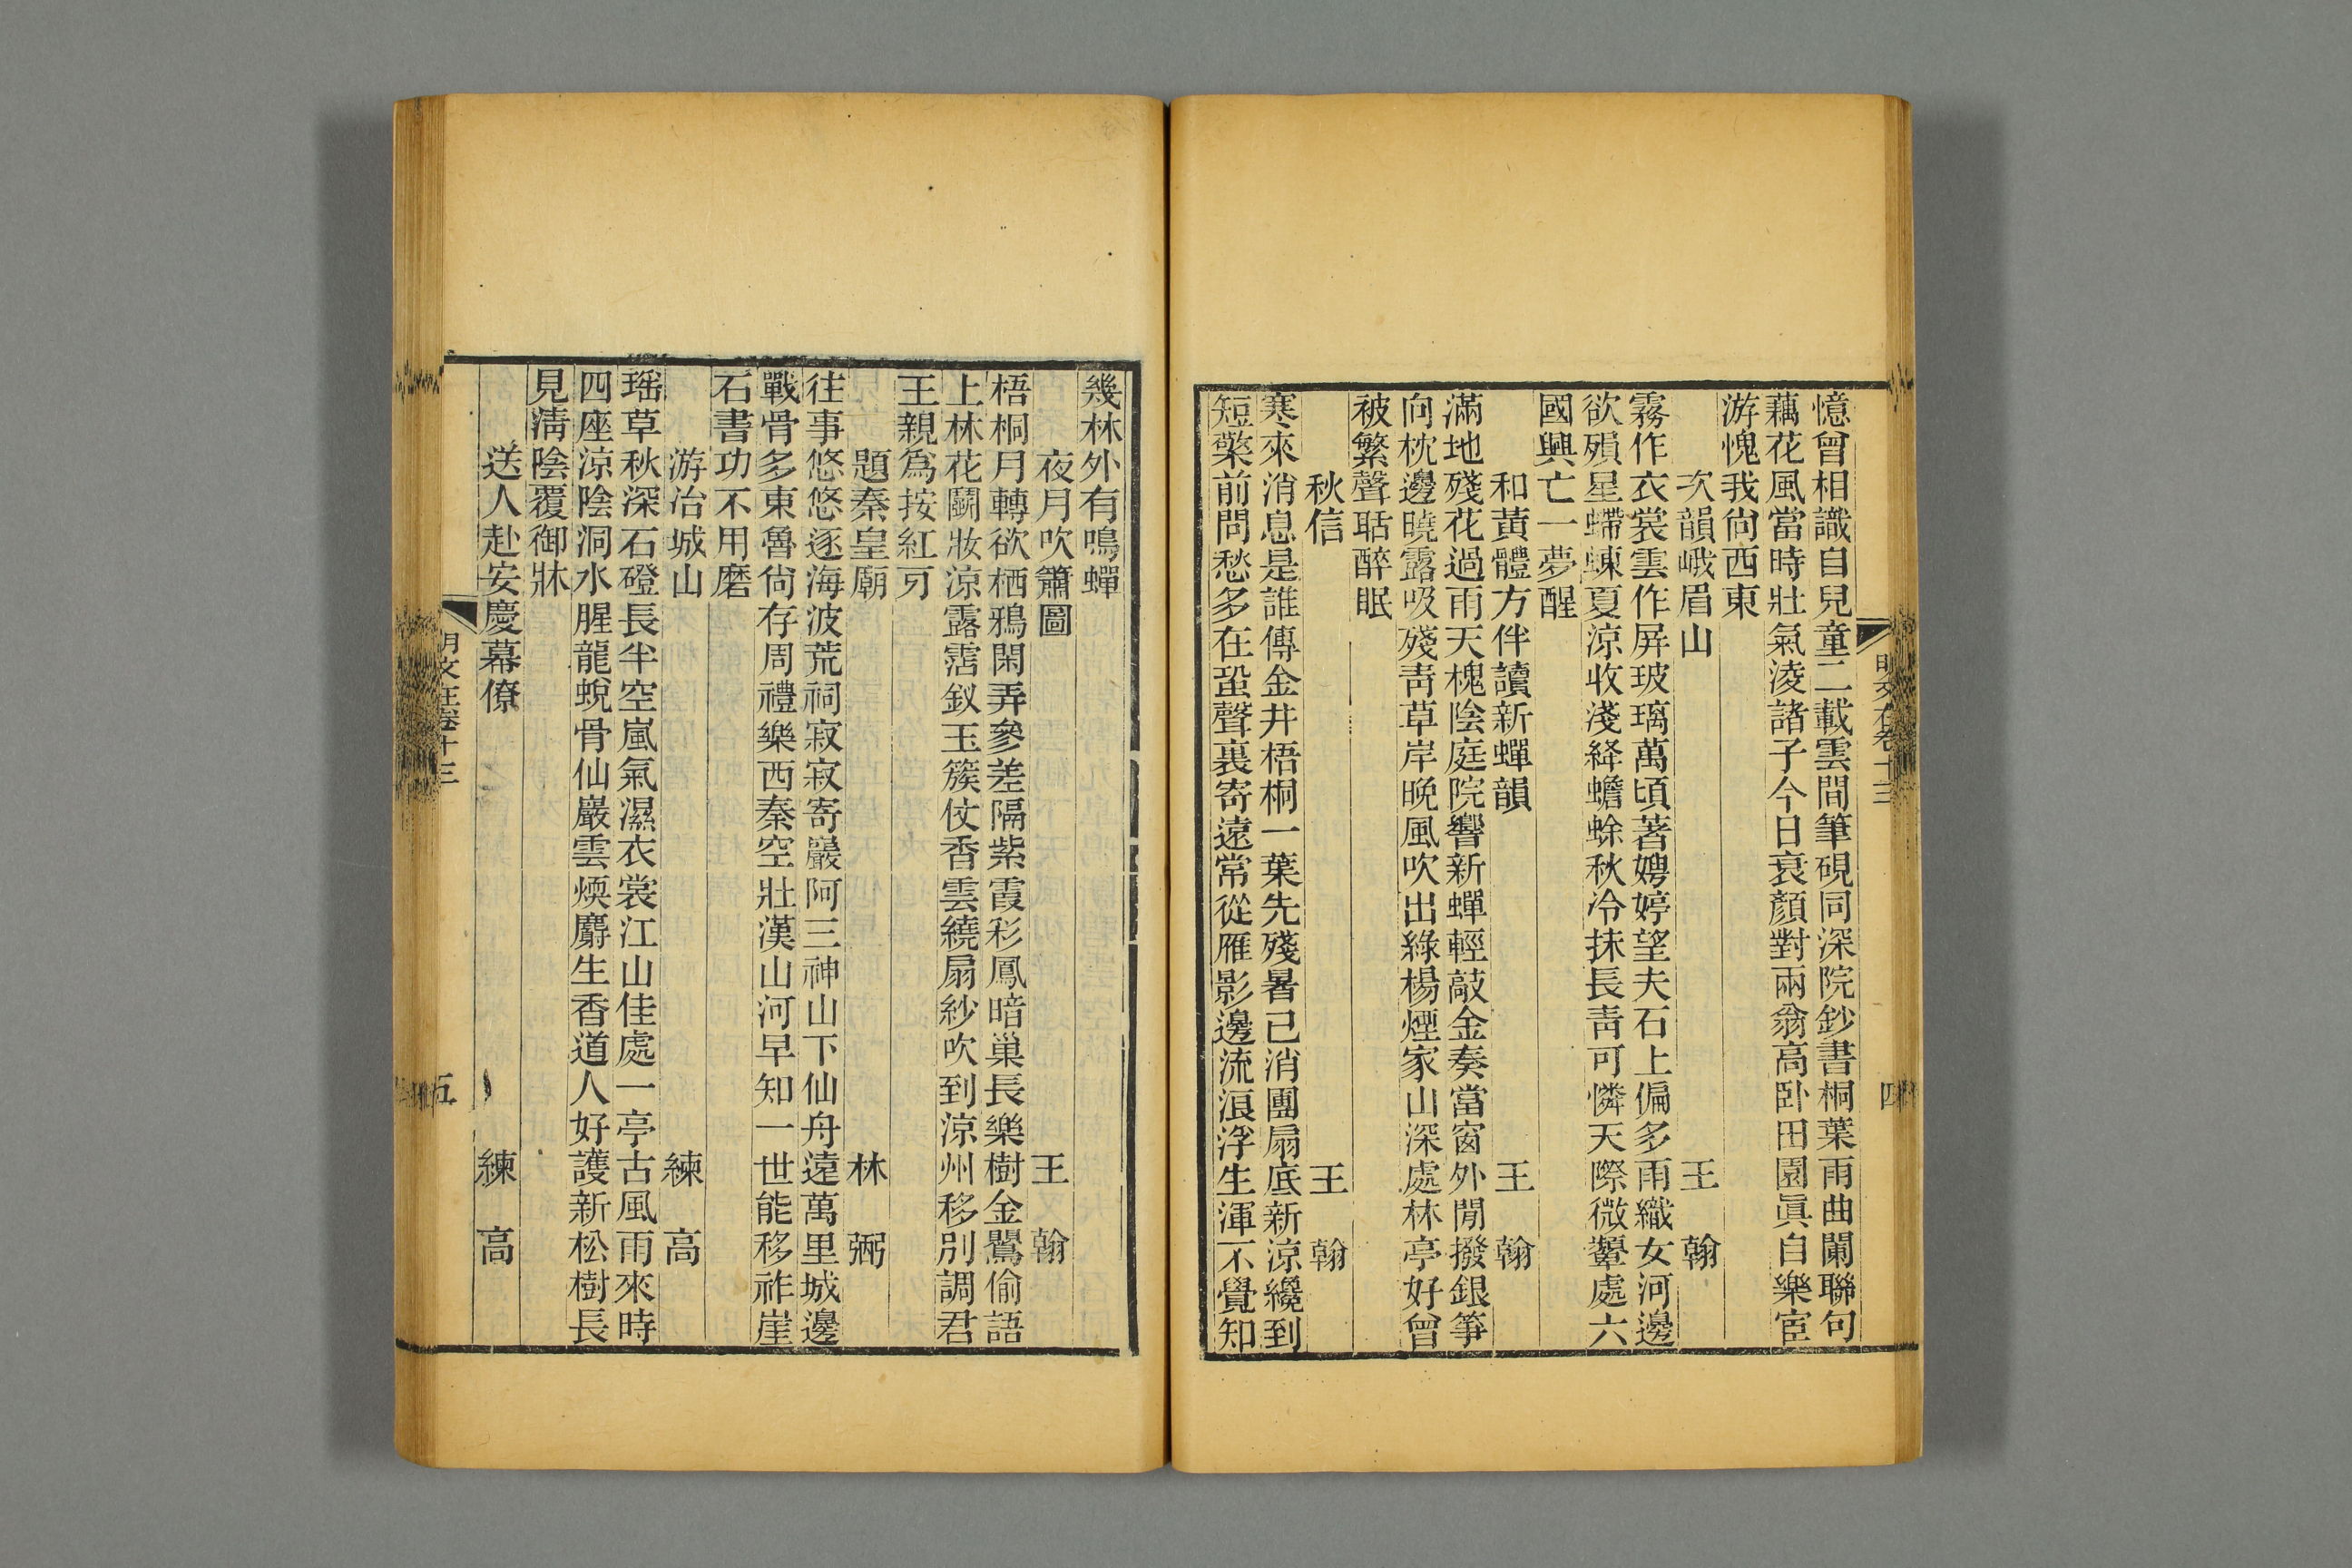 憶曾相識自兒童二載雲間筆硯同深院鈔書桐葉雨曲闌聯句
藕花風當時壯氣淩諸子今日衰顏對兩翁高臥田園眞自樂宦
游愧我尙西東
次韻峨眉山 王翰
霧作衣裳雲作屏玻璃萬頃著娉婷望夫石上偏多雨織女河邊
欲殞星螮蝀夏涼收淺絳蟾蜍秋冷抹長靑可憐天際微顰處六
國興亡一夢醒
和黃體方伴讀新蟬韻 王翰
滿地殘花過雨天槐陰庭院響新蟬輕敲金奏當窗外閒撥銀箏
向枕邊曉露吸殘靑草岸晚風吹出綠楊煙家山深處林亭好曾
被繁聲聒醉眠
秋信 王翰
寒來消息是誰傳金井梧桐一葉先殘暑已消團扇底新涼纔到
短檠前問愁多在蛩聲裏寄遠常從雁影邊流浪浮生渾不覺知
明文在卷十三
四
幾林外有鳴蟬
夜月吹簫圖 王翰
梧桐月轉欲栖鴉閑弄參差隔紫霞彩鳳暗巢長樂樹金鶯偷語
上林花鬬妝涼露霑釵玉簇仗香雲繞扇紗吹到涼州移別調君
王親爲按紅牙
題秦皇廟 林弼
往事悠悠逐海波荒祠寂寂寄巖阿三神山下仙舟遠萬里城邊
戰骨多東魯尙存周禮樂西秦空壯漢山河早知一世能移祚崖
石書功不用磨
游冶城山 練高
瑤草秋深石磴長半空嵐氣濕衣裳江山佳處一亭古風雨來時
四座涼陰洞水腥龍蛻骨仙巖雲煖麝生香道人好護新松樹長
見淸陰覆御牀
送人赴安慶幕僚 練高
明文在卷十三
五